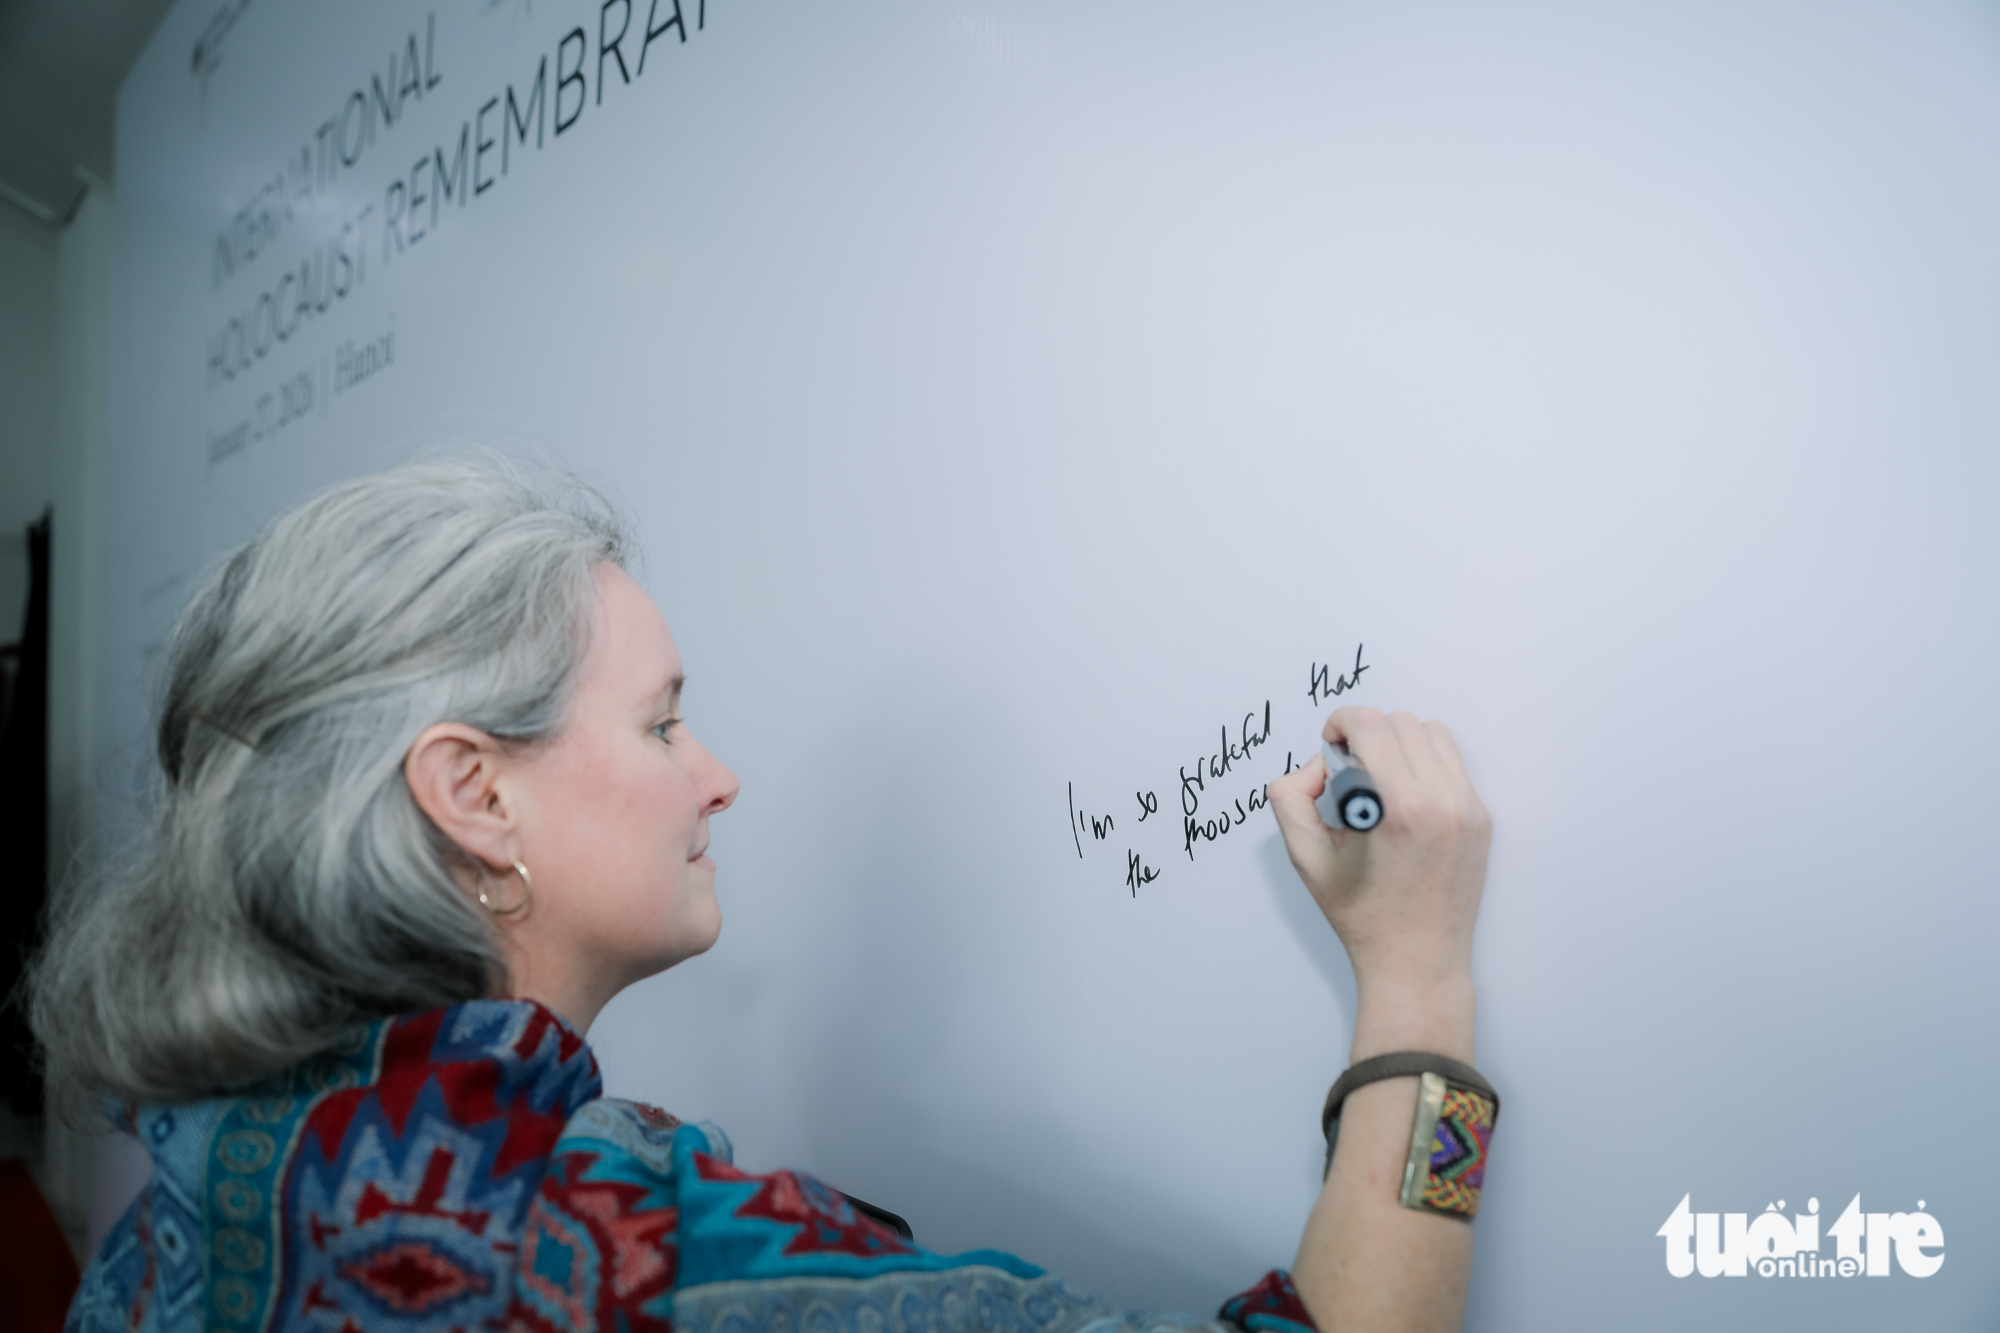 INTERNATIONAL
HOLOCAUST REMEMBRA
January 27, 2026 | Hanoi
I'm so grateful that
the thousand
tuổi trẻ
online